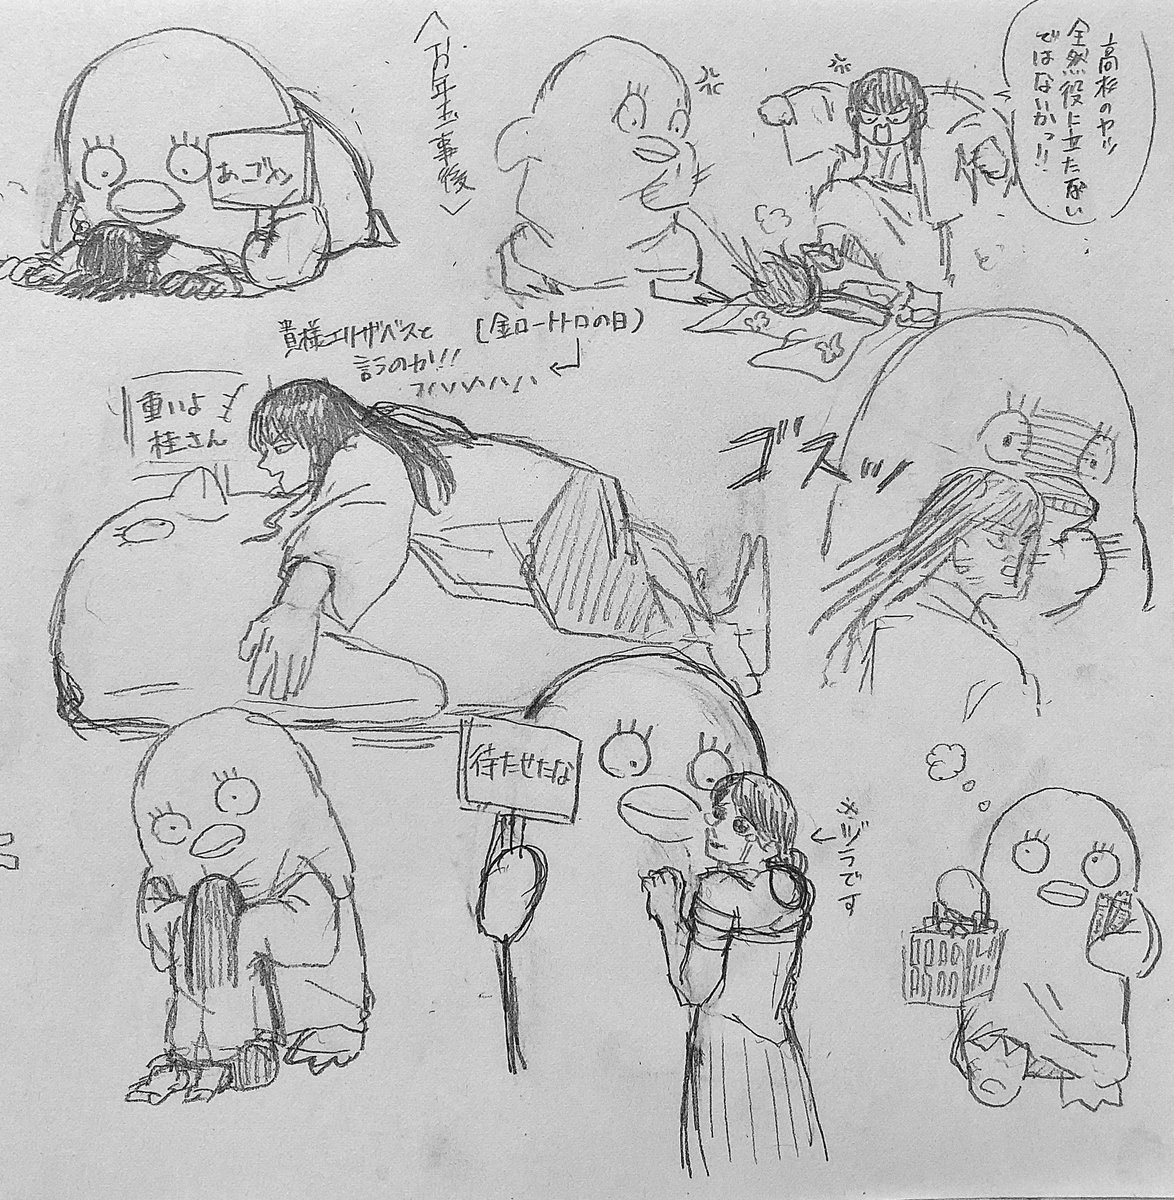 高杉のヤツ
全然役に立たない
ではないかっ!!
〈お年玉事後〉
あ、ゴメン
貴様エリザベスと
言うのか!!
フハハハハハ
(金ロートトロの日)
重いよ
桂さん
ゴスッ
待たせたな
ヅラです